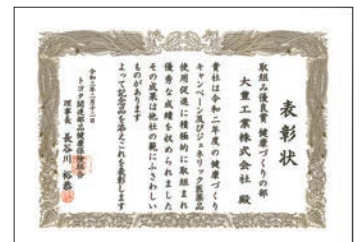 表彰状
取組み優良賞 健康づくりの部
大豊工業株式会社 殿
貴社は令和二年度の健康づくり
キャンペーン及びジェネリック医薬品
使用促進に積極的に取組まれ
優秀な成績を収められました
その成果は他社の範にふさわしい
ものがあります
よって記念品を添えこれを表彰します
令和三年二月十二日
トヨタ関連部品健康保険組合
理事長 長谷川 裕恭